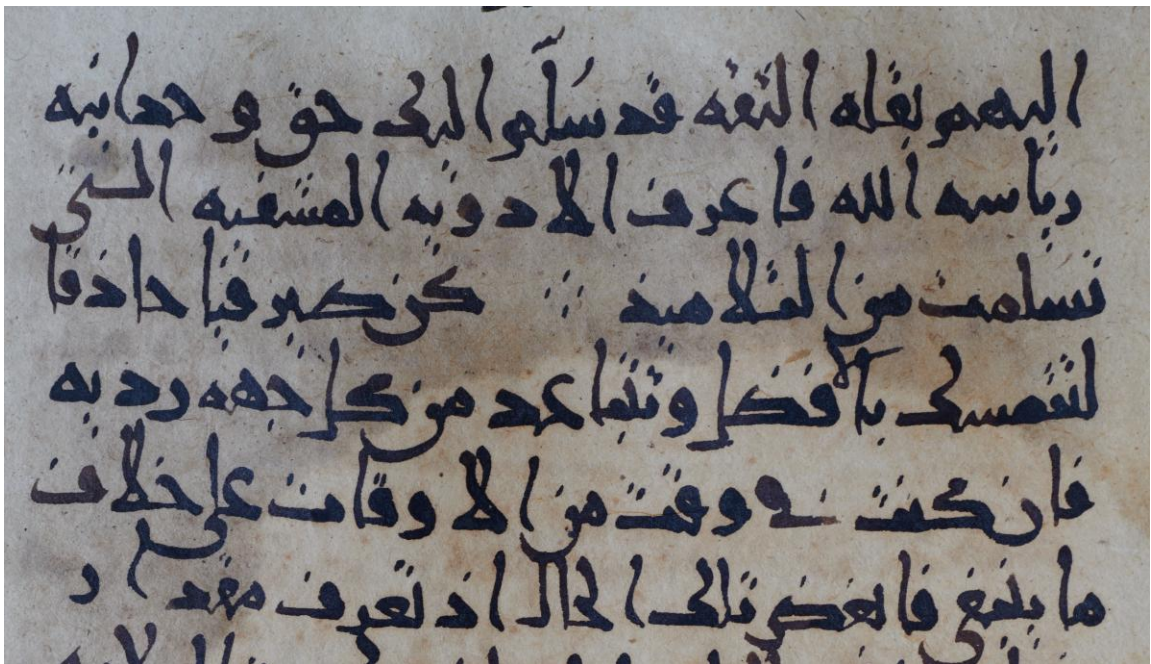 اليهم بقله الثقه قد سلموا اليك حق وحدانيه
رياسه الله فاعرف الادويه المشفيه التي
تسلمت من التلاميذ كن صيرفيا حاذقا
لتتمسك بالافضل وتتباعد من كل جهه رديه
فان كنت في وقت من الاوقات على خلاف
ما ينبغي فابغض تلك الحال اذ تعرف مقدار